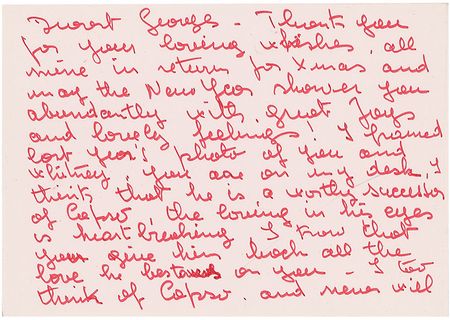 Dearest George - Thank you
for your loving wishes, all
mine in return for Xmas and
may the New Year shower you
abundantly with great Joys
and lovely feelings. I framed
last year's photo of you and
Whitney, you are on my desk, I
think that he is a worthy successor
of Capso, the loving in his eyes
is heartbreaking I know that
you give him back all the
love he bestows on you - I too
think of Capso. and never will